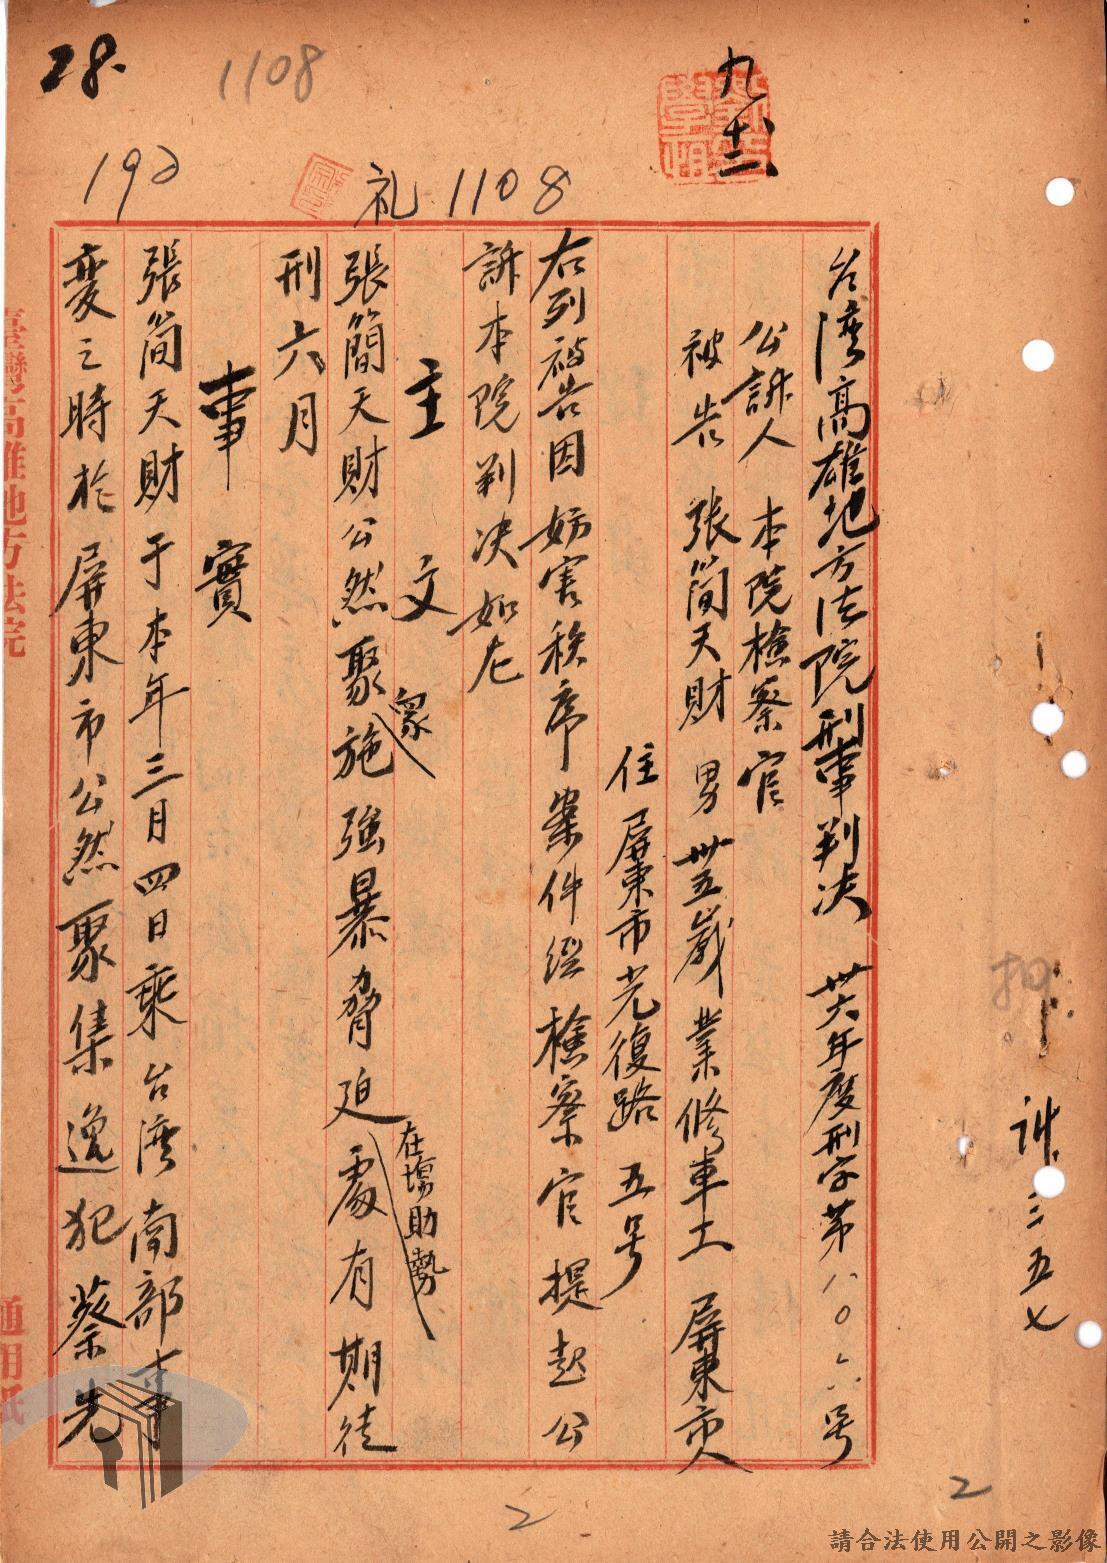 28.
1108
九廿六
192
礼 1108
台湾高雄地方法院刑事判决 卅六年度刑字第八〇六号
公訴人 本院檢察官
被告 張簡天財 男 卅五歲 業修車工 屏東市人
住 屏東市光復路 五号
右列被告因妨害秩序案件經檢察官提起公
訴本院判决如左
主文
張簡天財公然聚眾施強暴脅迫在場助勢處有期徒
刑六月
事實
張簡天財于本年三月四日乘台湾南部事
變之時於屏東市公然聚集逸犯蔡先
訴三五七
臺灣高雄地方法院
通用紙
2
2
請合法使用公開之影像